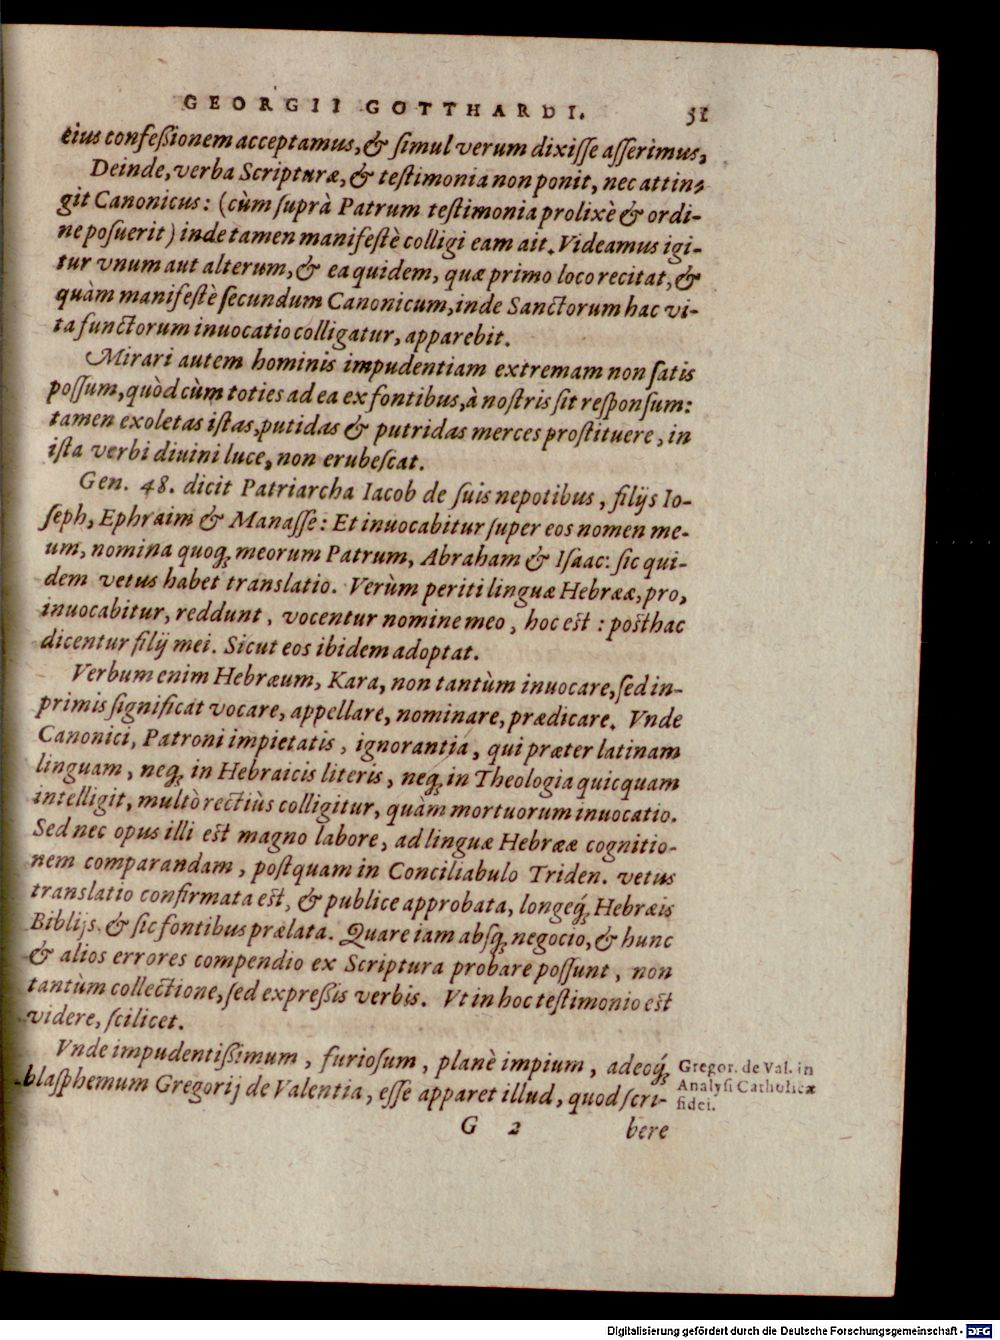 GEORGII GOTTHARDI. 51
eius confeßionem acceptamus, & ſimul verum dixiſſe aſſerimus,
Deinde, verba Scripturæ, & teſtimonia non ponit, nec attin-
git Canonicus: (cùm ſuprà Patrum teſtimonia prolixè & ordi-
ne poſuerit) inde tamen manifeſtè colligi eam ait. Videamus igi-
tur vnum aut alterum, & ea quidem, quæ primo loco recitat, &
quàm manifeſtè ſecundum Canonicum, inde Sanctorum hac vi-
ta functorum inuocatio colligatur, apparebit.
Mirari autem hominis impudentiam extremam non ſatis
poſſum, quòd cùm toties ad ea ex fontibus, à noſtris ſit reſponſum:
tamen exoletas iſtas, putidas & putridas merces proſtituere, in
iſta verbi diuini luce, non erubeſcat.
Gen. 48. dicit Patriarcha Iacob de ſuis nepotibus, filijs Io-
ſeph, Ephraim & Manaſſe: Et inuocabitur ſuper eos nomen me-
um, nomina quoq; meorum Patrum, Abraham & Iſaac: ſic qui-
dem vetus habet translatio. Verùm periti linguæ Hebrææ, pro,
inuocabitur, reddunt, vocentur nomine meo, hoc est: posthac
dicentur filij mei. Sicut eos ibidem adoptat.
Verbum enim Hebræum, Kara, non tantùm inuocare, ſed in-
primis ſignificat vocare, appellare, nominare, prædicare. Vnde
Canonici, Patroni impietatis, ignorantia, qui præter latinam
linguam, neq; in Hebraicis literis, neq; in Theologia quicquam
intelligit, multò rectiùs colligitur, quàm mortuorum inuocatio.
Sed nec opus illi est magno labore, ad linguæ Hebrææ cognitio-
nem comparandam, poſtquam in Conciliabulo Triden. vetus
translatio confirmata est, & publice approbata, longeq́; Hebræis
Biblijs, & ſic fontibus prælata. Quare iam abſq; negocio, & hunc
& alios errores compendio ex Scriptura probare poſſunt, non
tantùm collectione, ſed expreßis verbis. Vt in hoc teſtimonio est
videre, ſcilicet.
Vnde impudentißimum, furioſum, planè impium, adeoq́;
blaſphemum Gregorij de Valentia, eſſe apparet illud, quod ſcri-
Gregor. de Val. in
Analyſi Catholicæ
fidei.
G 2 bere
Digitalisierung gefördert durch die Deutsche Forschungsgemeinschaft - DFG